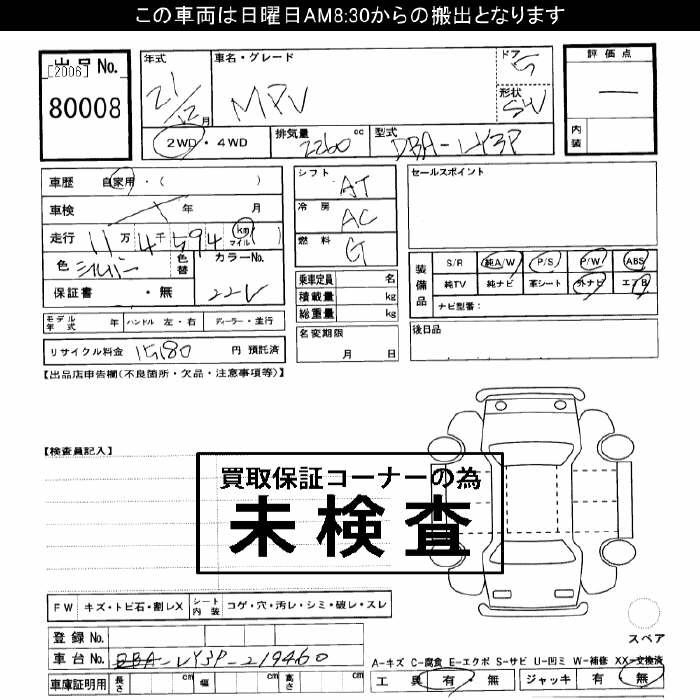 この車両は日曜日AM8:30からの搬出となります
出品No.
[2006]
80008
年式
21/12月
車名・グレード
MPV
ドア
5
形状
SW
2WD・4WD
排気量 2260 cc
型式 DBA-LY3P
評価点
—
内装
車歴 自家用・( )
車検 年 月
走行 11万4千594 km マイル
色 シルバー 色替 カラーNo.
保証書 ・無 22V
モデル年式 年 ハンドル 左・右 ディーラー・並行
リサイクル料金 15180 円 預託済
シフト AT
冷房 AC
燃料 G
乗車定員 名
積載量 kg
総重量 kg
名変期限
月 日
セールスポイント
装備品
S/R 純A/W P/S P/W ABS
純TV 純ナビ 革シート 外ナビ エアB
ナビ型番:
後日品
【出品店申告欄(不良箇所・欠品・注意事項等)】
【検査員記入】
買取保証コーナーの為
未検査
FW キズ・トビ石・割レX シート内装 コゲ・穴・汚レ・シミ・破レ・スレ
登録No.
車台No. DBA-LY3P-219460
車庫証明用 長さ cm 幅 cm 高さ cm
スペア
A-キズ C-腐食 E-エクボ S-サビ U-凹ミ W-補修 XX-交換済
工具 有・無 ジャッキ 有・無